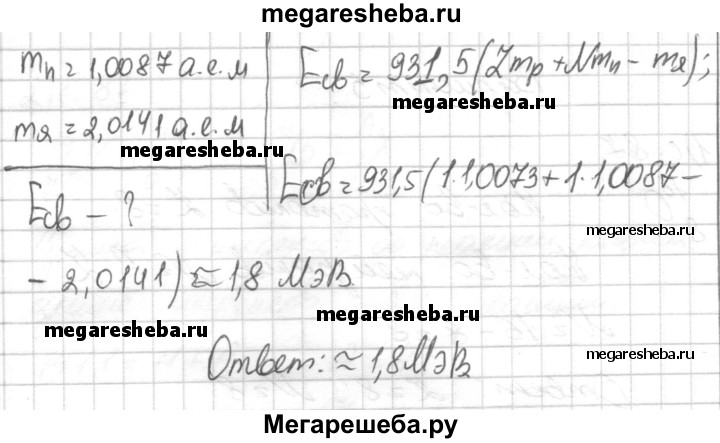 megaresheba.ru
mn = 1,0087 а.е.м
Eсв = 931,5(Zmp + Nmn - mя);
megaresheba.ru
mя = 2,0141 а.е.м
megaresheba.ru
Eсв = 931,5(1·1,0073 + 1·1,0087 -
Eсв - ?
megaresheba.ru
- 2,0141) ≈ 1,8 МэВ
megaresheba.ru
megaresheba.ru
Ответ: ≈ 1,8 МэВ
megaresheba.ru
Мегарешеба.ру